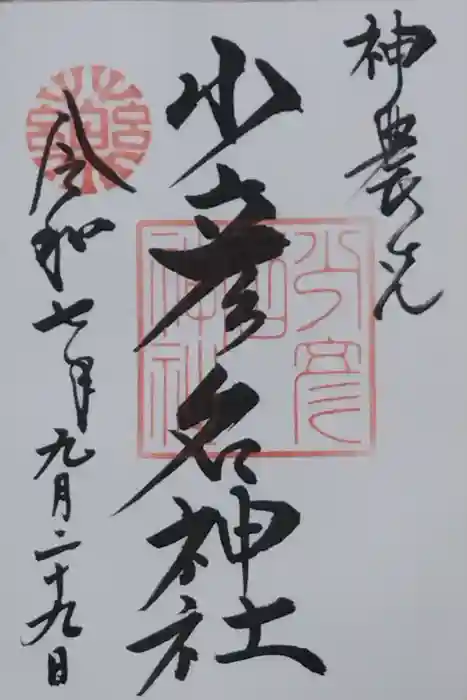 神農さん
少彦名神社
少彦名神社
令和七年九月二十九日